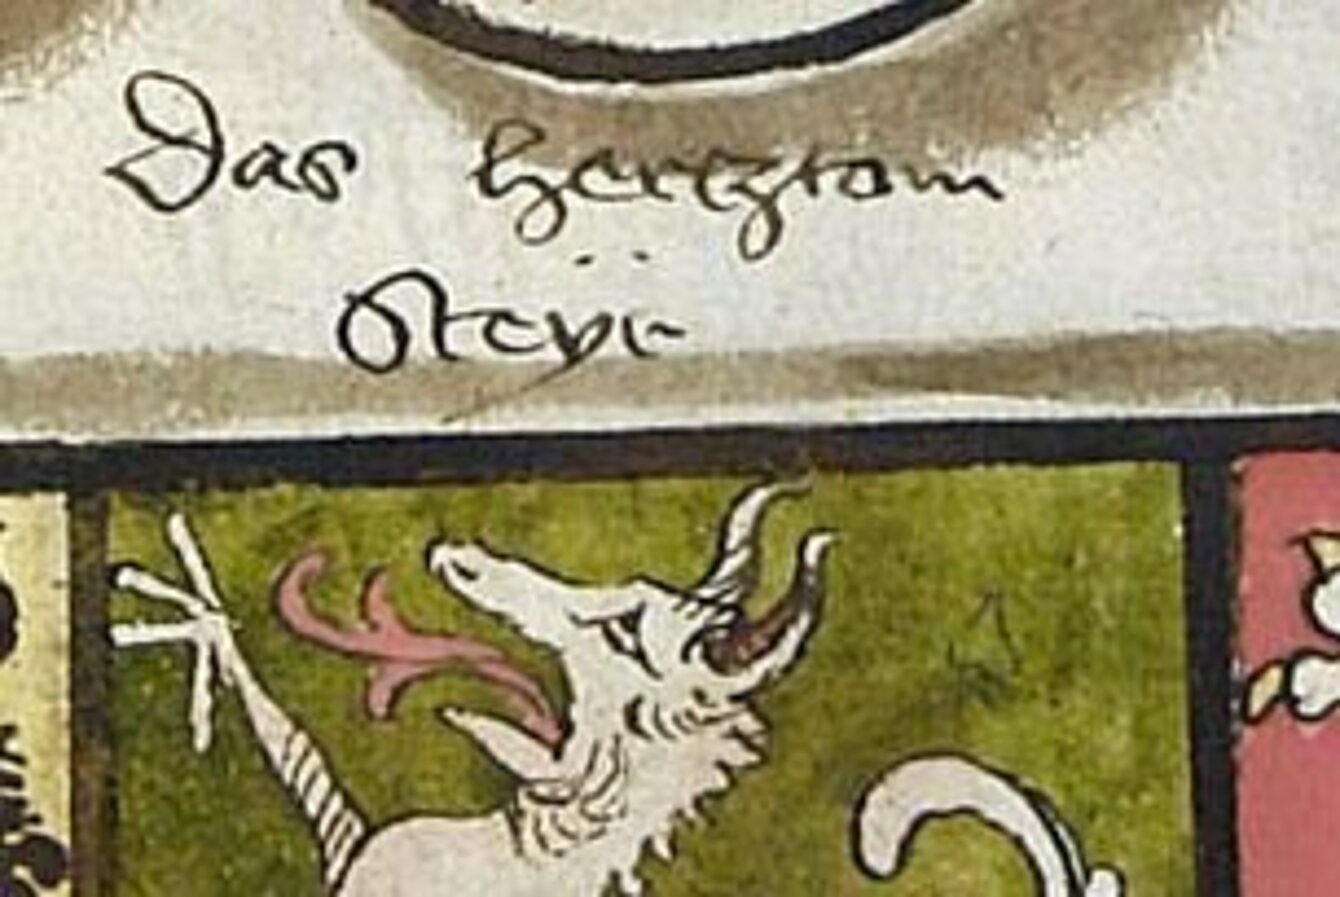 Das hertztom
Steÿr